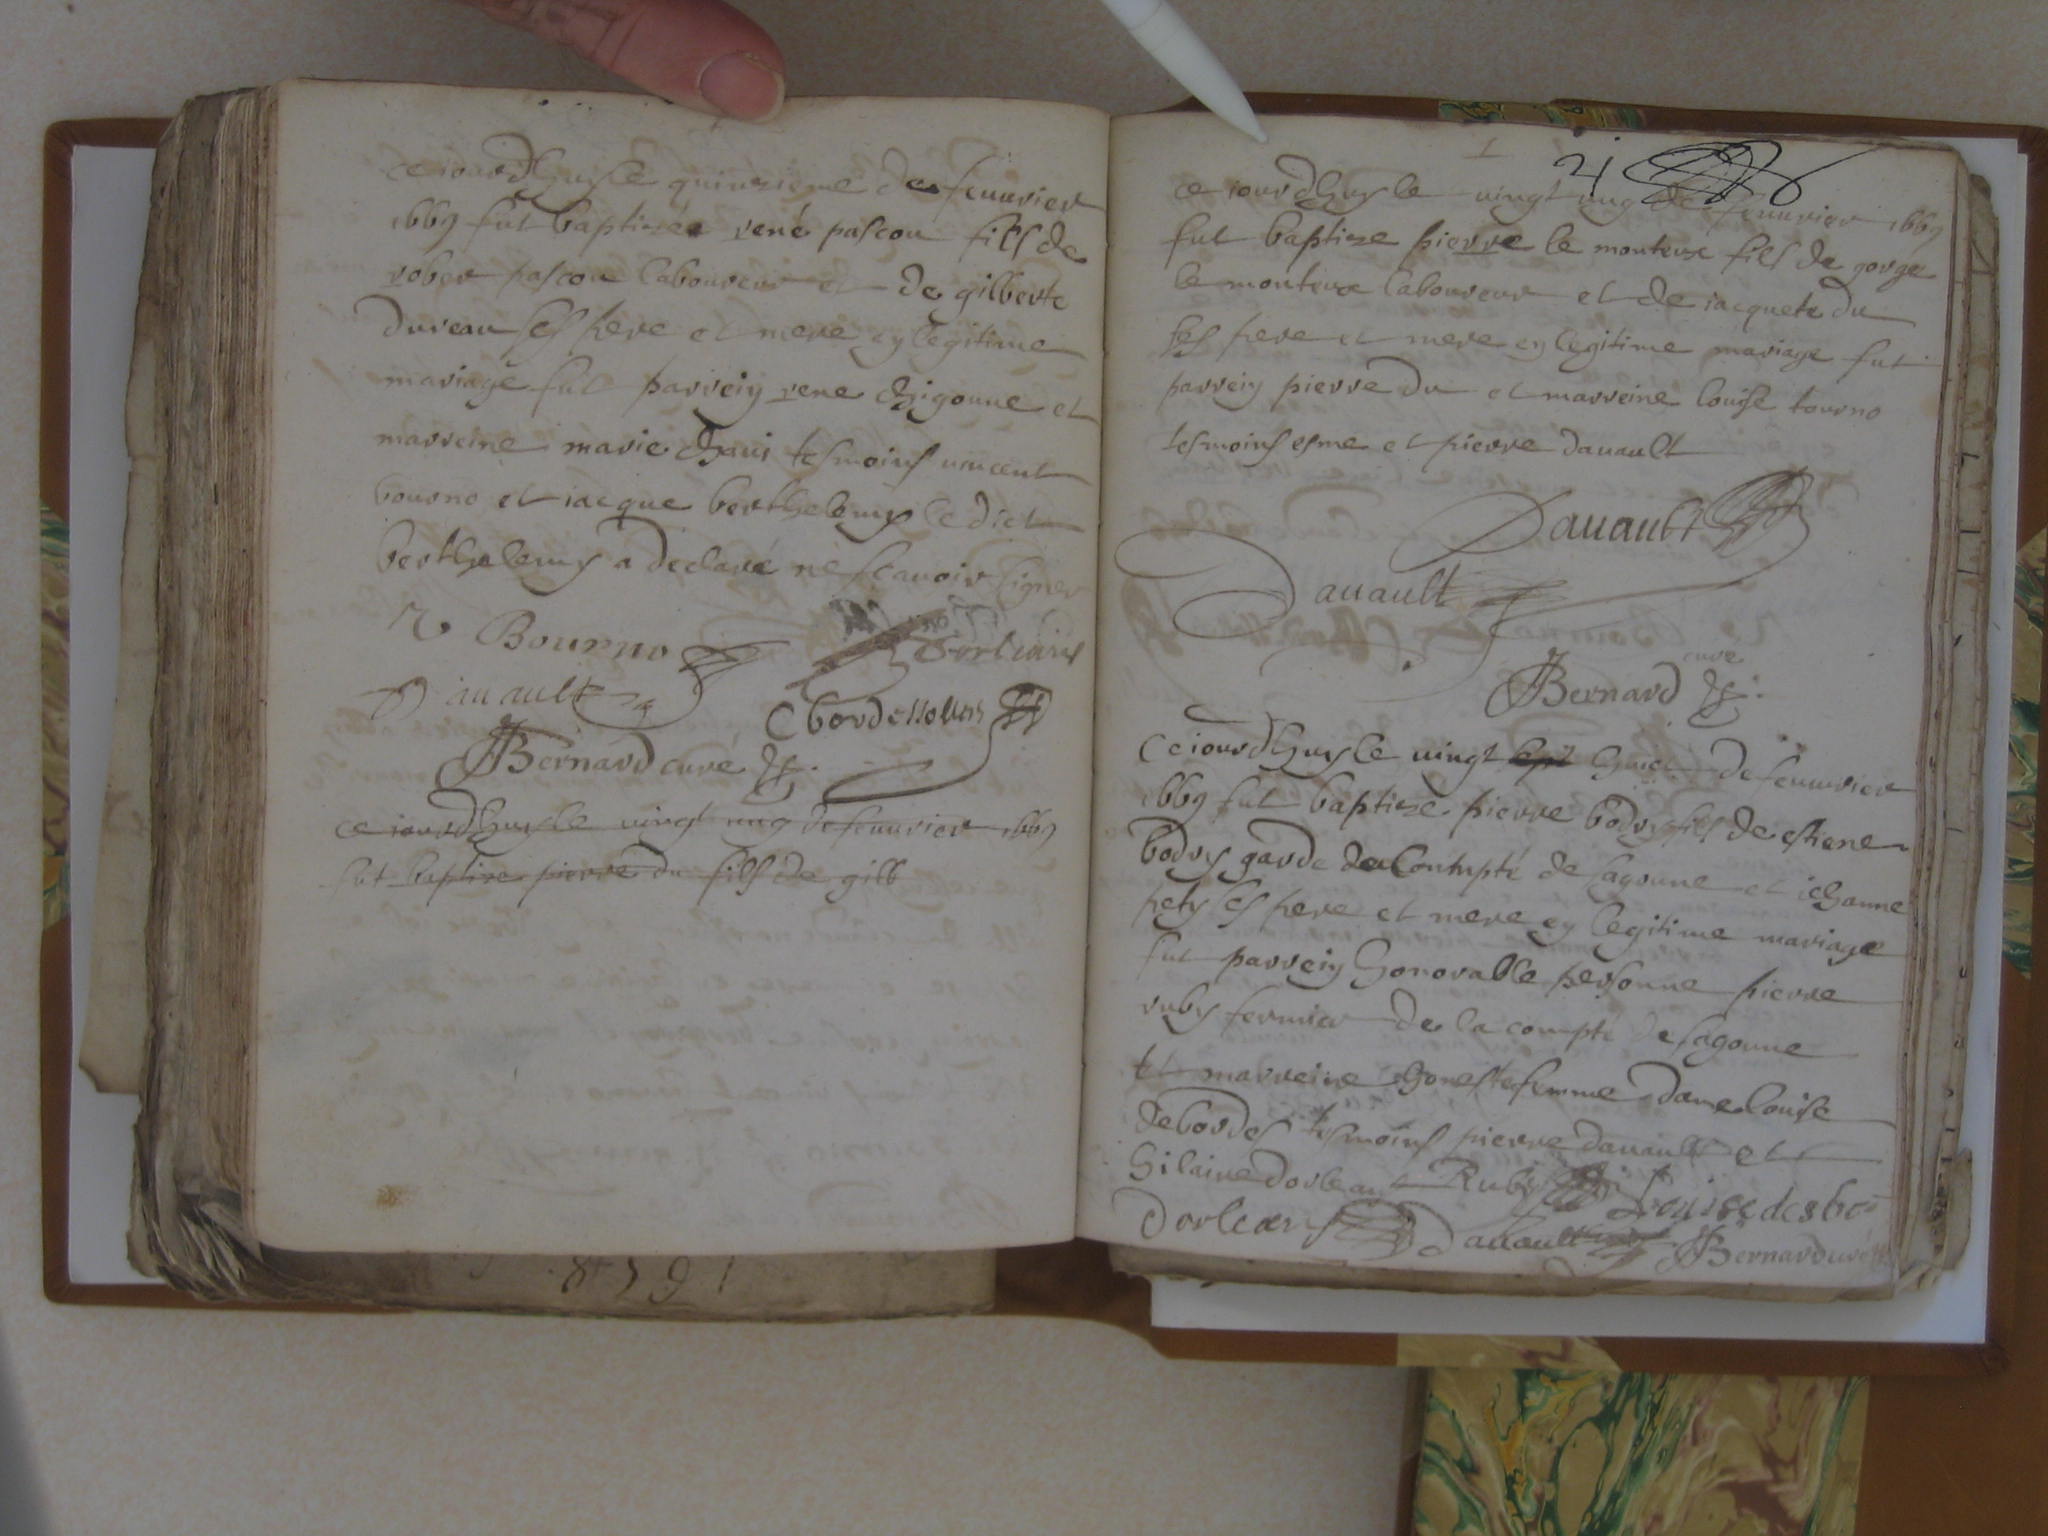 ce iourdhuy le quinzieme de feuurier
1669 fut baptizée rené pascou fils de
rober pascou laboureur et de gilberte
dureau ses pere et mere en legitime
mariage fut parrein rene chigonne et
marreine marie thaui tesmoins uincent
bourno et iacque berthelemy le dict
berthelemy a declaré ne scauoir signer
Bourno dorleans
dauault C bordessoulles
JBernard curé
ce iourdhuy le uingt ung de feuurier 1669
fut baptize pierre du fils de gilb
21
ce iourdhuy le uingt ung de feuurier 1669
fut baptize pierre le monteux fils de gorge
le monteux laboureur et de iacquete du
ses pere et mere en legitime mariage fut
parrein pierre du et marreine louise tourno
tesmoins esme et pierre dauault
Dauault
Dauault
JBernard curé
Ce iourdhuy le uingt sept huict de feuurier
1669 fut baptize pierre bodry fils de estiene
bodry garde de la Contupté de sagonne et iehanne
pety ses pere et mere en legitime mariage
fut parrein honorable personne pierre
ruby fermier de la compté de sagonne
et marreine honeste femme dame louise
debordes tesmoins pierre dauault et
hilaire dorleans Ruby Louise desbor
dorleans dauault JBernard curé
1658